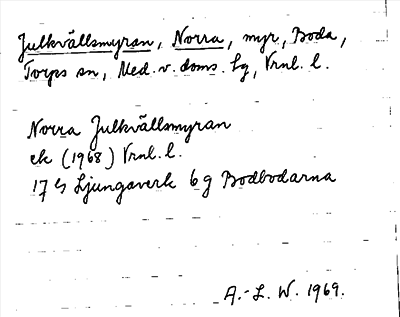 Julkvällsmyran, Norra, myr, Boda,
Torps sn, Med. v. doms. lg, Vrnl. l.
Norra Julkvällsmyran
ek (1968) Vrnl. l.
17 G Ljungaverk 6 g Bodbodarna
A.-L. W. 1969.